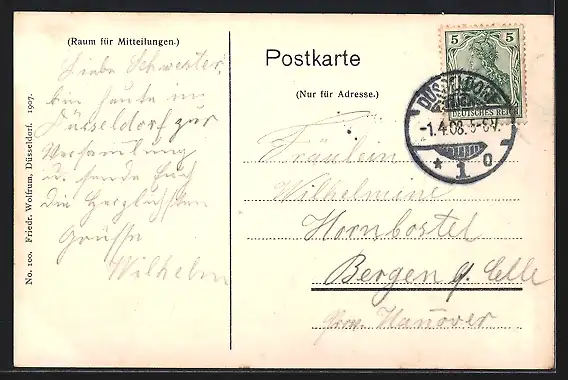 (Raum für Mitteilungen.)
Liebe Schwester,
bin heute in
Düsseldorf zur
Versammlung
u. sende Euch
die herzlichsten
Grüsse
Wilhelm
No. 100. Friedr. Wolfrum, Düsseldorf. 1907.
Postkarte
(Nur für Adresse.)
5 5
DEUTSCHES REICH
DÜSSELDORF
-1.4.08. 5-6V.
* 1 o
Fräulein
Wilhelmine
Hornbostel
Bergen b. Celle
Prov. Hanover